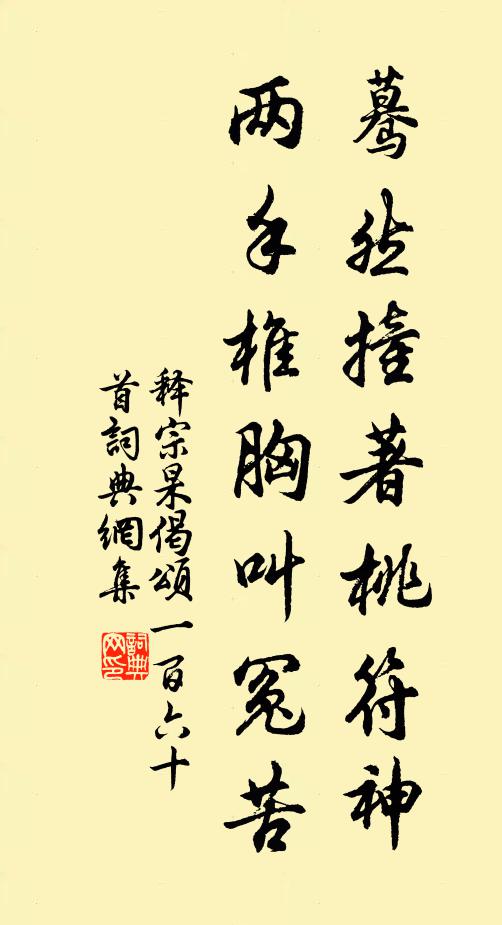 驀然撞著桃符神
两手椎胸叫冤苦
释宗杲偈頌一百六十
首詞典網集
詞典网印